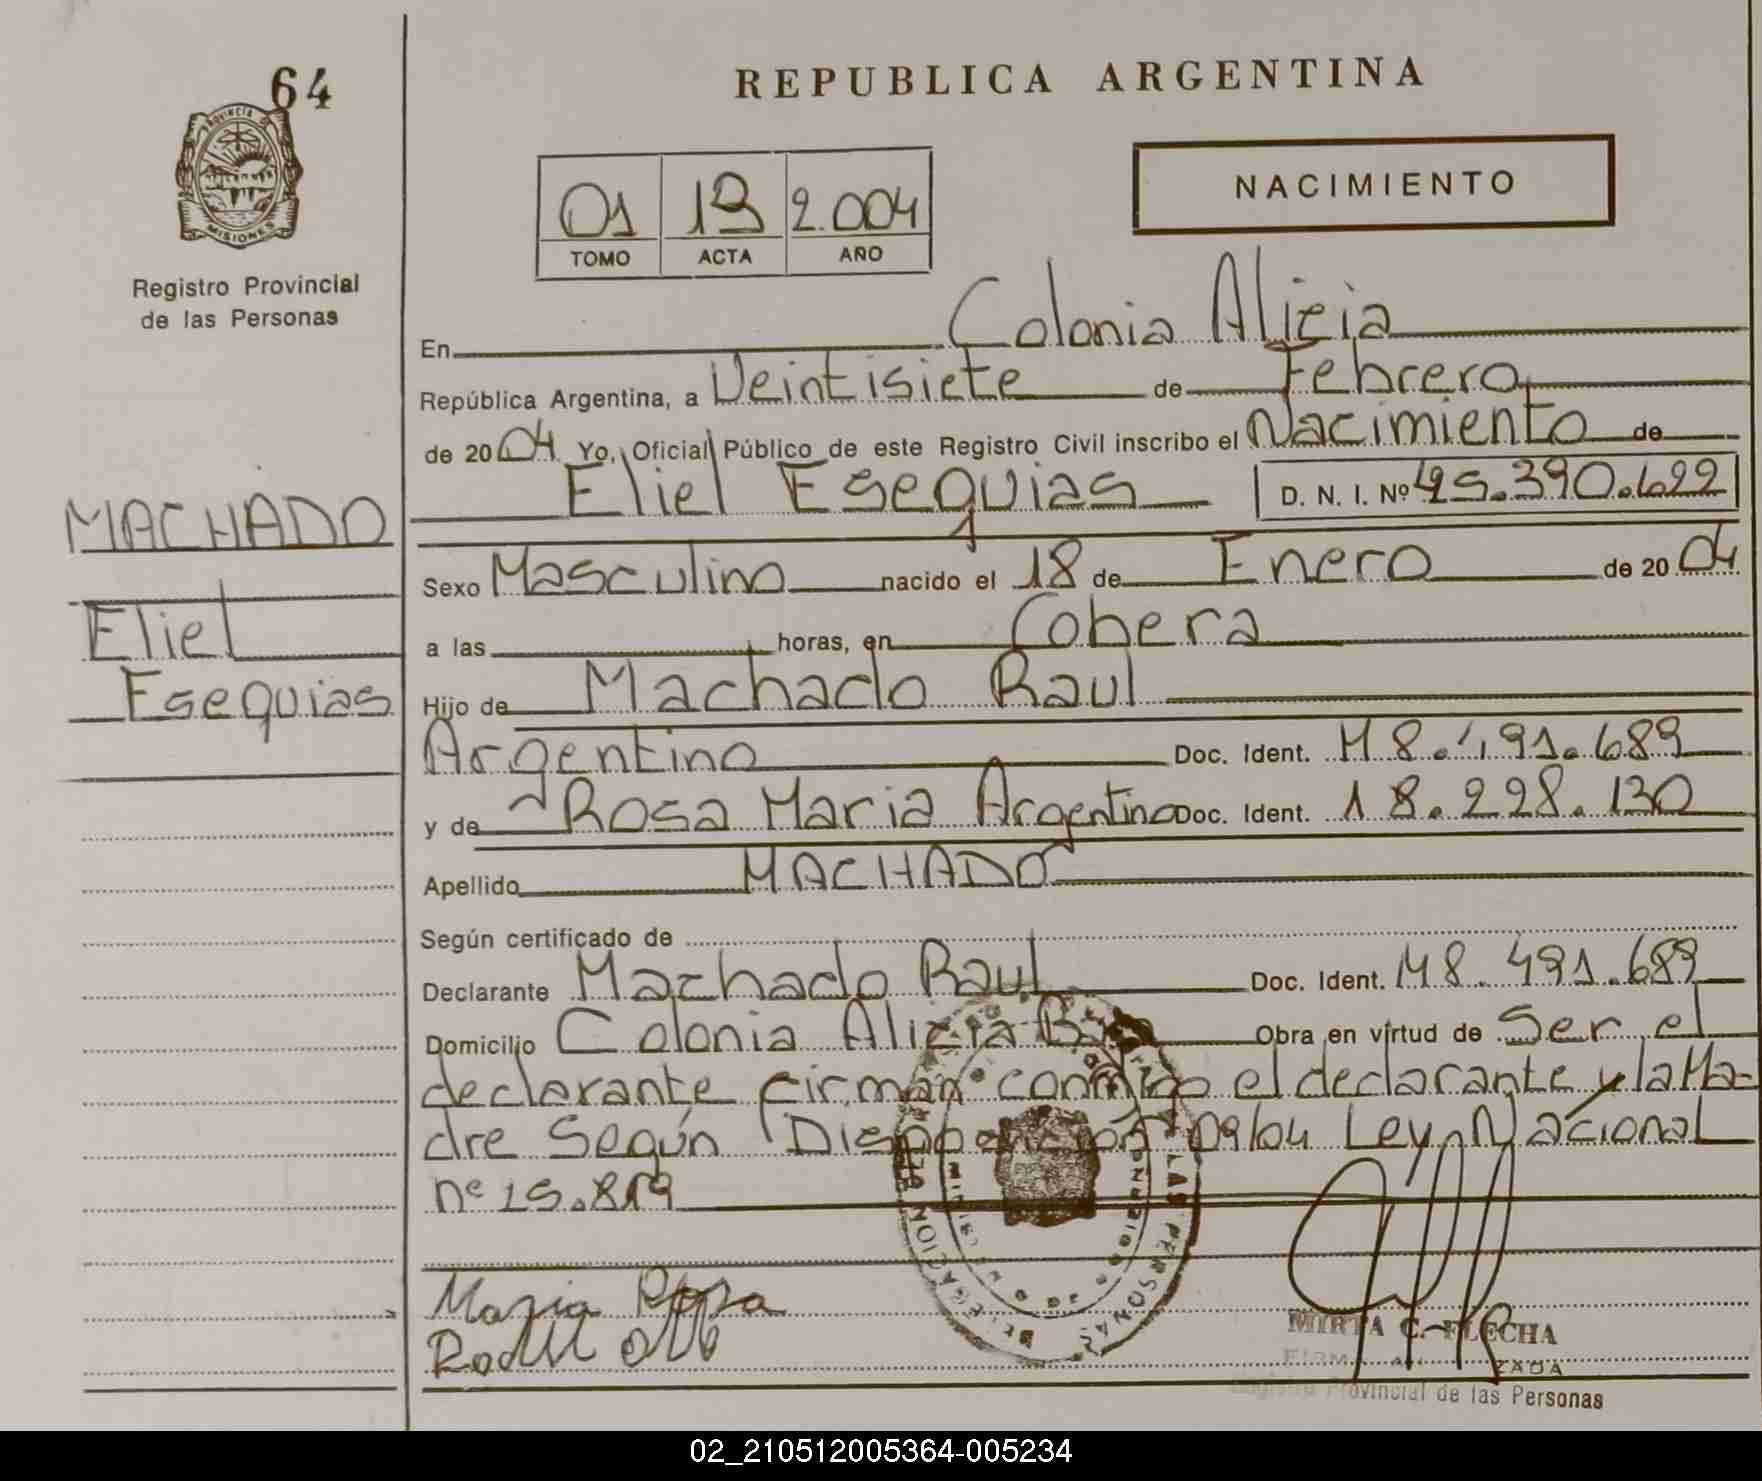 64
PROVINCIA DE
MISIONES
Registro Provincial
de las Personas
MACHADO
Eliel
Esequias
REPUBLICA ARGENTINA
NACIMIENTO
01 13 2.004
TOMO ACTA AÑO
En Colonia Alicia
República Argentina, a Veintisiete de Febrero
de 2004 Yo, Oficial Público de este Registro Civil inscribo el Nacimiento de
Eliel Esequias D. N. I. Nº 45.390.622
Sexo Masculino nacido el 18 de Enero de 2004
a las horas, en Cobera
Hijo de Machado Raul
Argentino Doc. Ident. M8.491.689
y de Rosa Maria Argentina Doc. Ident. 18.228.130
Apellido MACHADO
Según certificado de
Declarante Machado Raul Doc. Ident. M8.491.689
Domicilio Colonia Alicia Obra en virtud de Ser el
declarante firman conmigo el declarante y la Ma-
dre Según Disposición Ley Nacional
nº 15.819
Maria Rosa
MIRTA C. FLECHA
Registro Provincial de las Personas
DELEGACION LAS PERSONAS
02_210512005364-005234